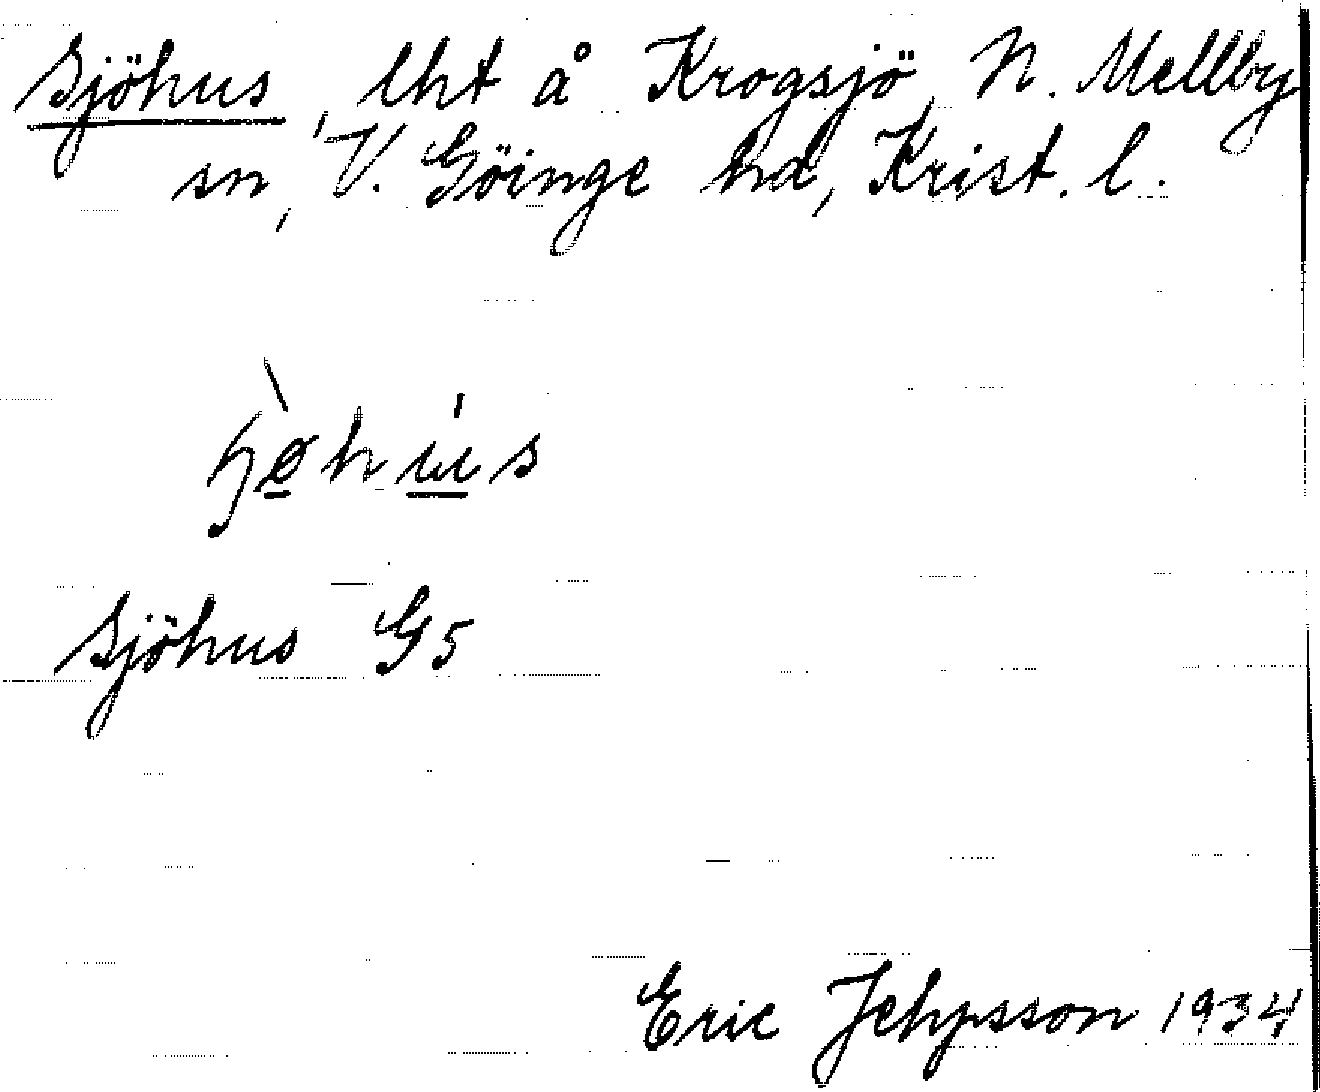 Sjöhus, lht å Krogsjö, N. Mellby
sn, V. Göinge hd, Krist. l.
Sjöhus G5
Eric Jehpsson 1934